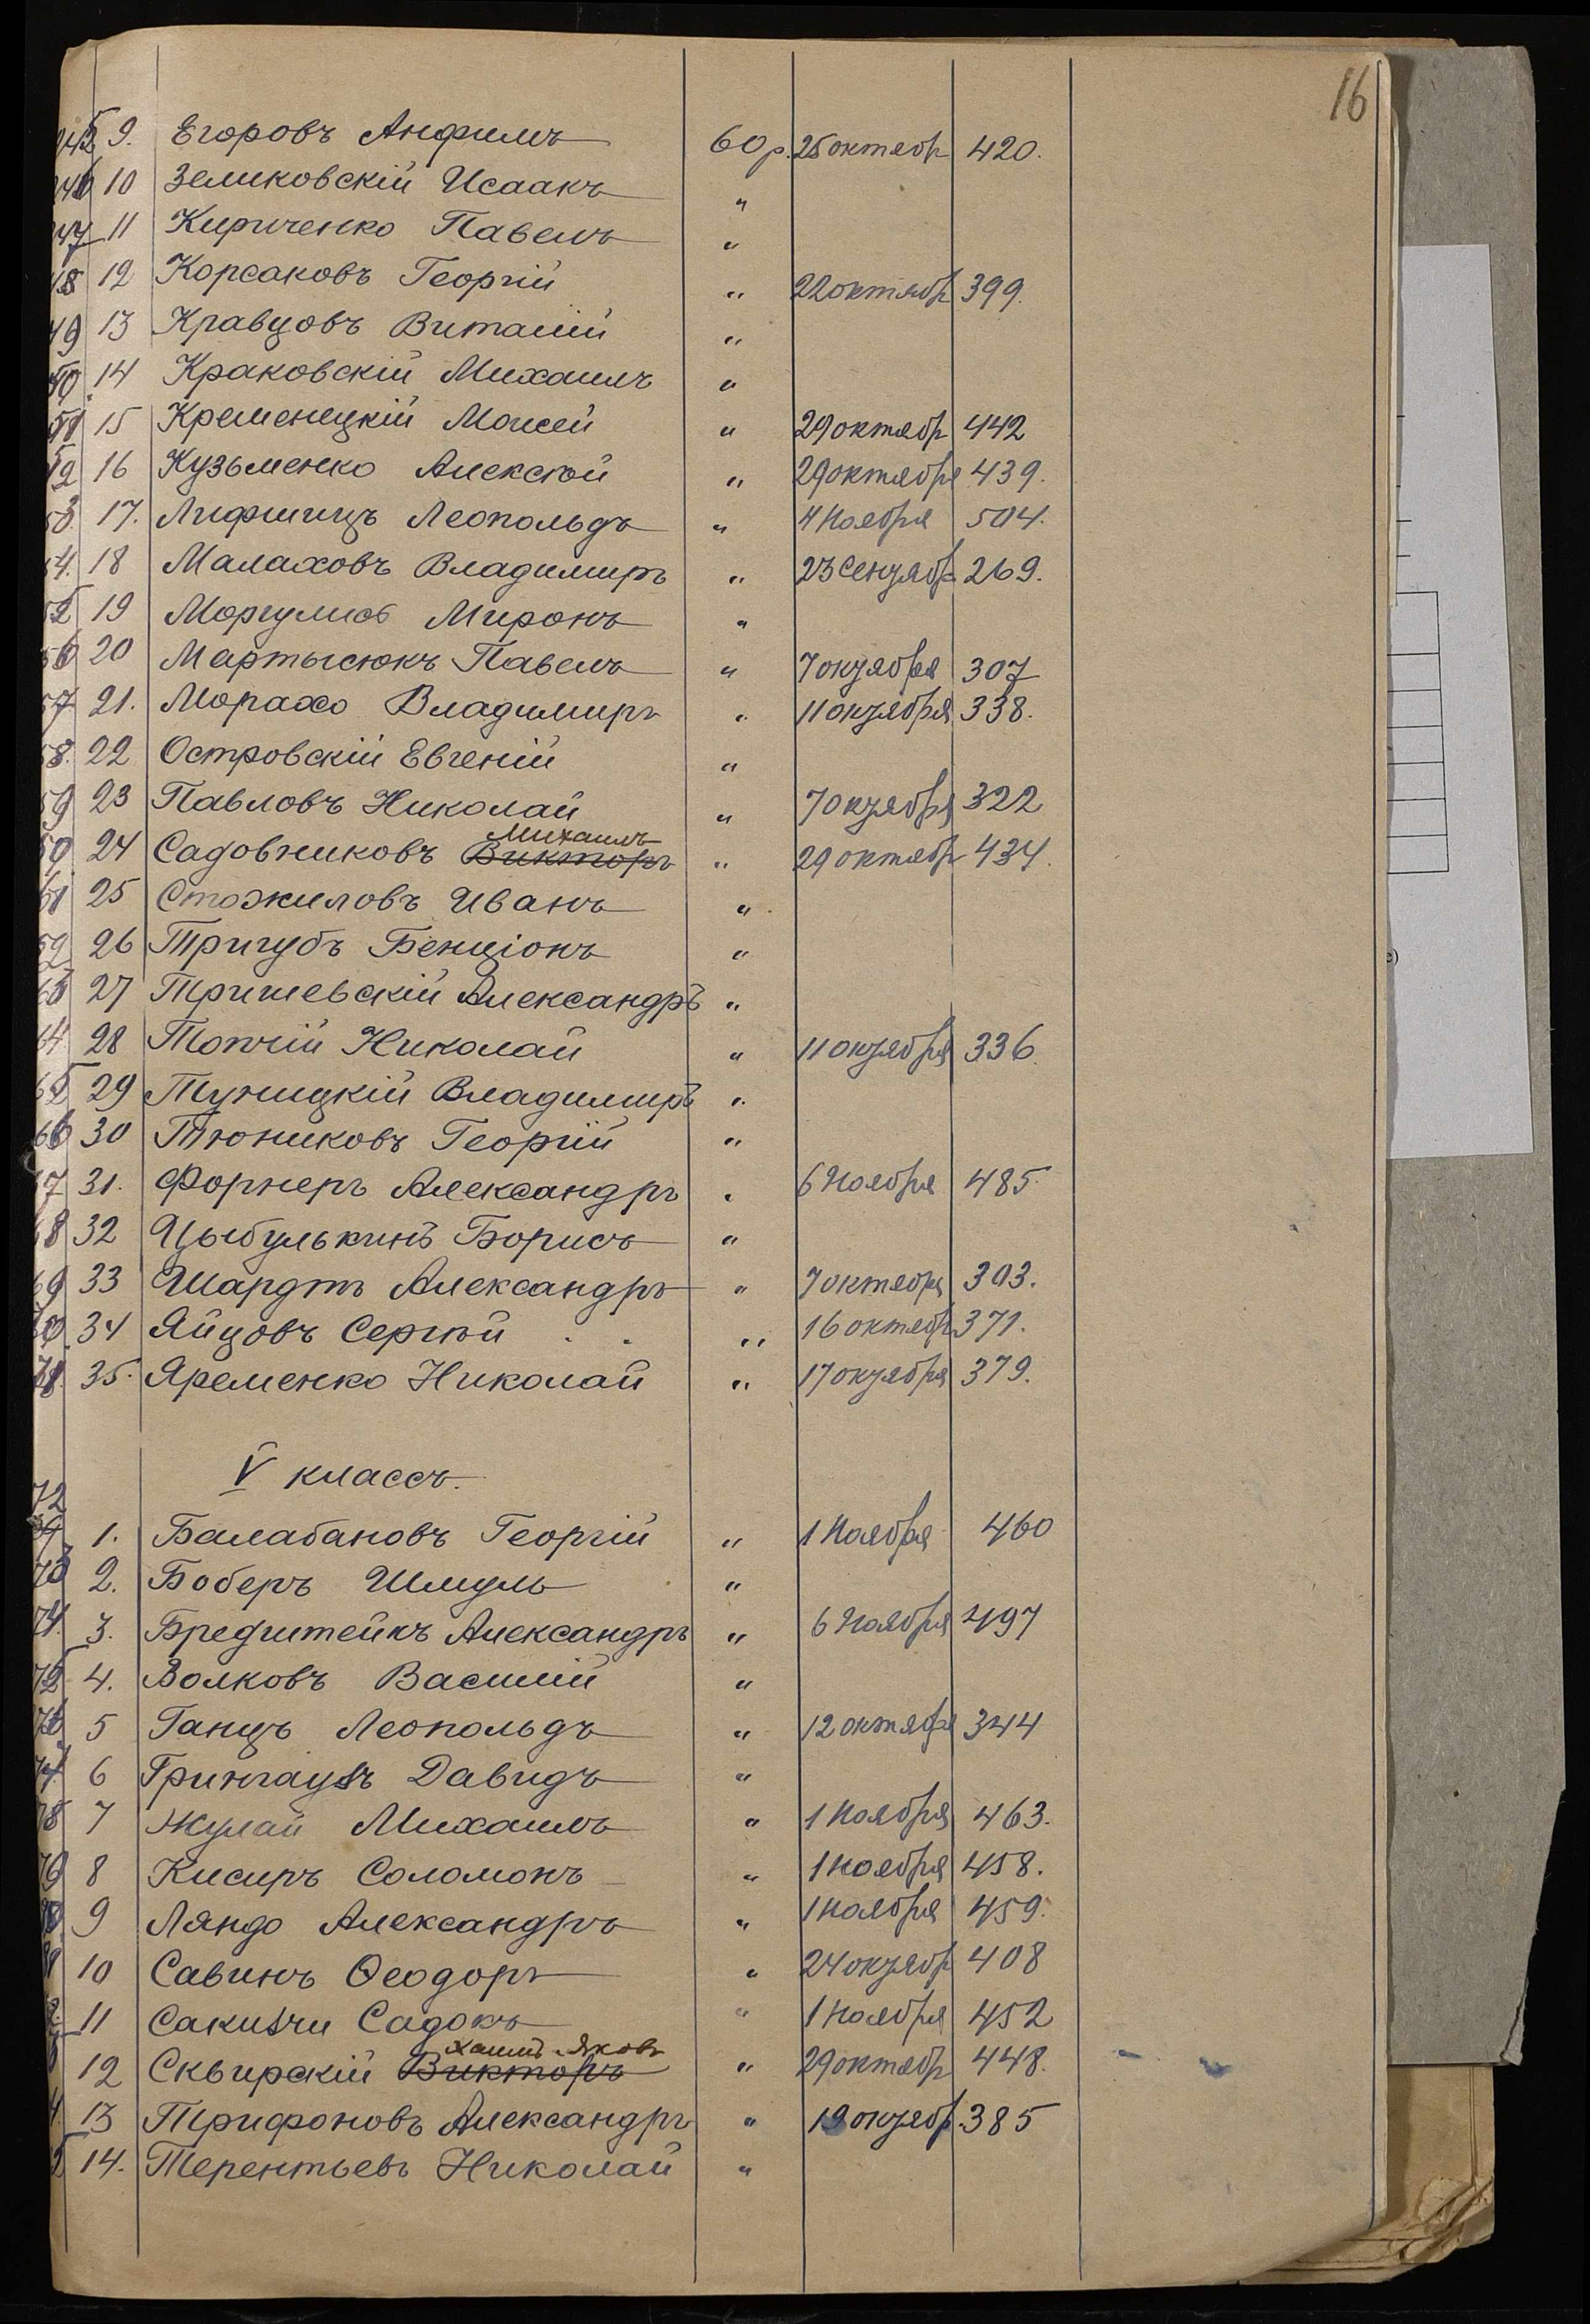 16
9. Егоровъ Анфимъ 60 р. 25 октябр 420.
10 Зеликовскій Исаакъ "
47 11 Кириченко Павелъ "
48 12 Корсаковъ Георгій " 22 октябр 399.
49 13 Кравцовъ Виталій "
50 14 Краковскій Михаилъ "
51 15 Кременецкій Моисей " 29 октябр 442
52 16 Кузьменко Алексѣй " 29 октября 439.
53 17. Лифшицъ Леопольдъ " 4 Ноября 504.
54. 18 Малаховъ Владимиръ " 23 Сентябр 269.
55 19 Моргулисъ Миронъ "
56 20 Мартысюкъ Павелъ " 7 октября 307
57 21. Морахо Владимиръ " 11 октября 338.
58. 22 Островскій Евгеній "
59 23 Павловъ Николай " 7 октября 322
Михаилъ
24 Садовниковъ Викторъ " 29 октябр 434.
61 25 Стожиловъ Иванъ "
62 26 Тригубъ Бенціонъ "
63 27 Тришевскій Александръ "
64 28 Топчій Николай " 11 октября 336.
65 29 Туницкій Владимиръ "
66 30 Тюниковъ Георгій "
67 31. Форнеръ Александръ " 6 Ноября 485.
68 32 Цыбулькинъ Борисъ "
69 33 Шардтъ Александръ " 7 октября 303.
70 34 Яйцовъ Сергѣй " 16 октябр 371.
71. 35. Яременко Николай " 17 октября 379.
V классъ.
72
1. Балабановъ Георгій " 1 Ноября 460
73 2. Боберъ Шмуль "
74. 3. Бредштейнъ Александръ " 6 Ноября 497
75 4. Волковъ Василій "
76 5 Ганцъ Леопольдъ " 12 октября 344
77 6 Грингаузъ Давидъ "
78 7 Жулай Михаилъ " 1 Ноября 463.
79 8 Кисиръ Соломонъ " 1 ноября 458.
80 9 Ляндо Александръ " 1 ноября 459.
81 10 Савинъ Ѳеодоръ " 24 октябр 408
11 Сакизчи Садокъ " 1 Ноября 452
Хаимъ-Яковъ
12 Сквирскій Викторъ " 29 октябр 448.
13 Трифоновъ Александръ " 19 октябр. 385
14. Терентьевъ Николай "